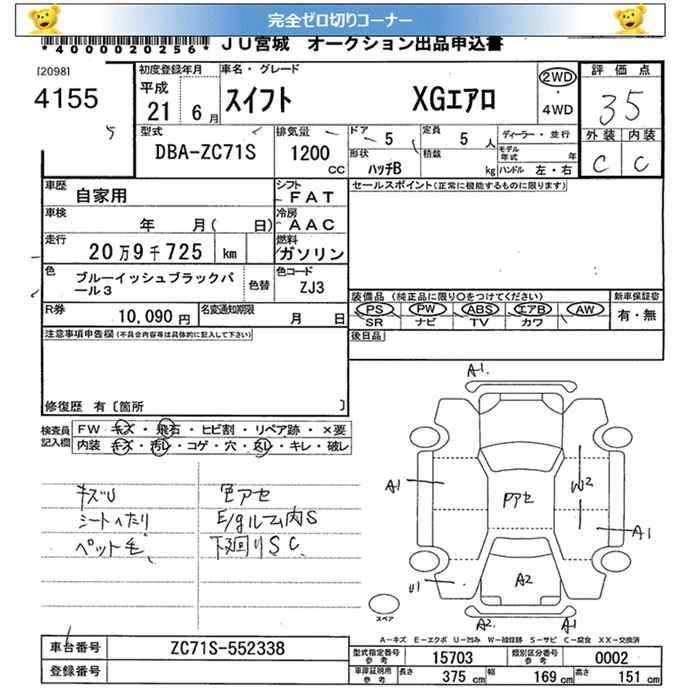 完全ゼロ切りコーナー
*4000020256* JU宮城 オークション出品申込書
[2098]
4155
初度登録年月
平成
21 6 月
車名・グレード
スイフト XGエアロ
2WD
・
4WD
評価点
35
外装 内装
C C
型式
DBA-ZC71S
排気量
1200
CC
ドア
5
形状
ハッチB
定員
5 人
積載
kg
ディーラー・並行
モデル年式 年
ハンドル 左・右
車歴
自家用
シフト
FAT
セールスポイント(正常に機能するものに限ります)
車検
年 月( 日)
冷房
AAC
走行
20万9千725 km
燃料
ガソリン
色
ブルーイッシュブラックパール3
色替
色コード
ZJ3
装備品 (純正品に限り○をつけてください)
PS PW ABS エアB AW
SR ナビ TV カワ
新車保証書
有・無
R券
10,090 円
名変通知期限
月 日
後日品
注意事項申告欄(不具合内容等は具体的に記入して下さい)
修復歴 有〔箇所 〕
検査員
記入欄
FW キズ・飛石・ヒビ割・リペア跡・×要
内装 キズ・汚レ・コゲ・穴・スレ・キレ・破レ
キズU
シートヘたり
ペット毛、
色アセ
E/gルーム内S
下廻りSC.
A1.
A1
Pアセ
W2
A1
U1
A2
A2.
A1
スペア
A-キズ E-エクボ U-凹み W-補修跡 S-サビ C-腐食 XX-交換済
車台番号 ZC71S-552338
登録番号
型式指定番号
参考
15703
類別区分番号
参考
0002
車庫証明用
参考
長さ 375 cm 幅 169 cm 高さ 151 cm